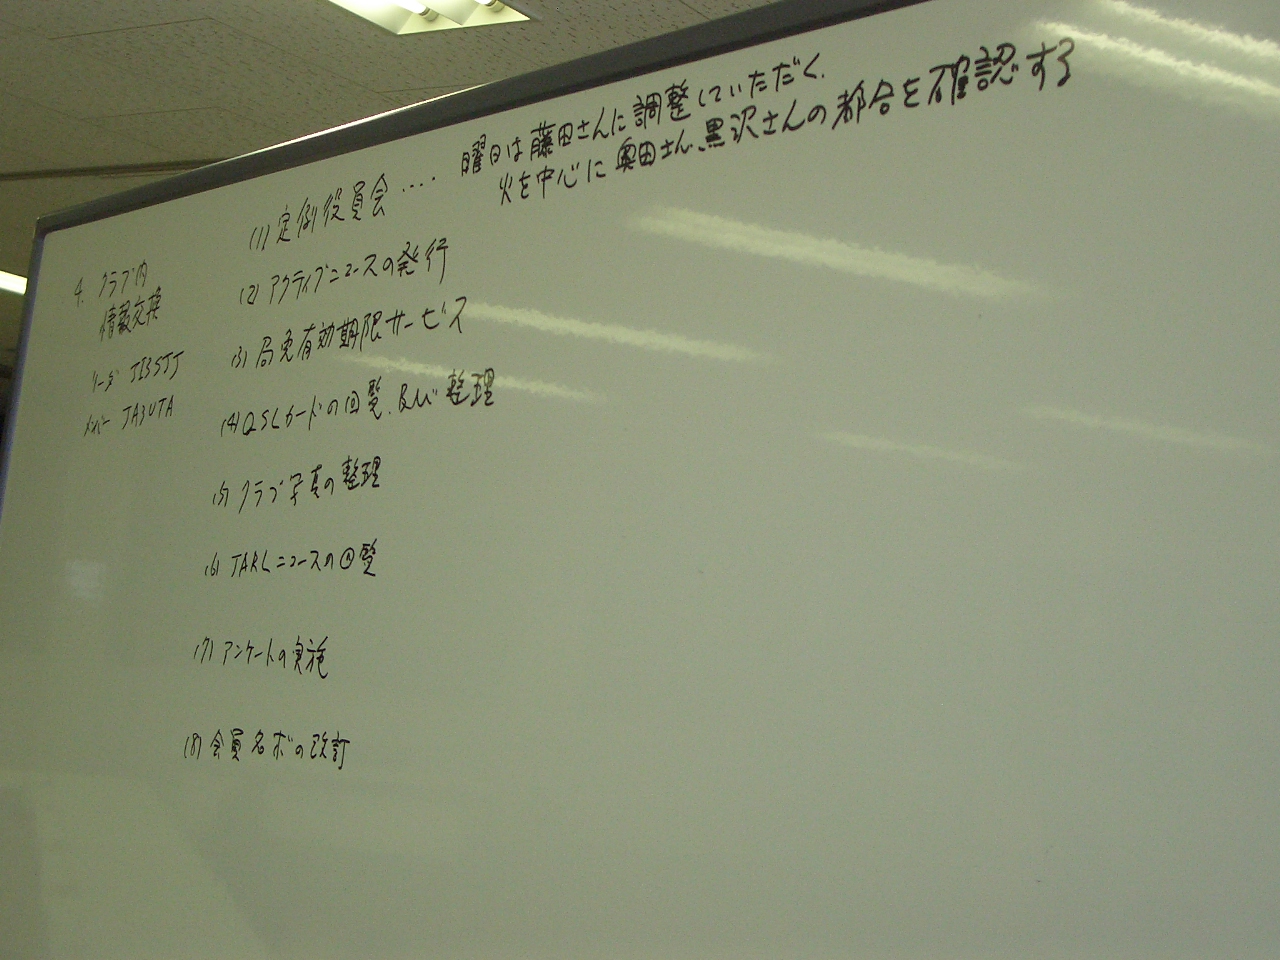 曜日は藤田さんに調整していただく.
火を中心に 奥田さん、黒沢さんの都合を確認する
(1) 定例役員会 ‥‥
4. クラブ内
情報交換
リーダ JI3STJ
メンバー JA3UTA
(2) アクティブニュースの発行
(3) 局免有効期限サービス
(4) QSLカードの回覧、及び整理
(5) クラブ写真の整理
(6) JARLニュースの回覧
(7) アンケートの実施
(8) 会員名ボの改訂